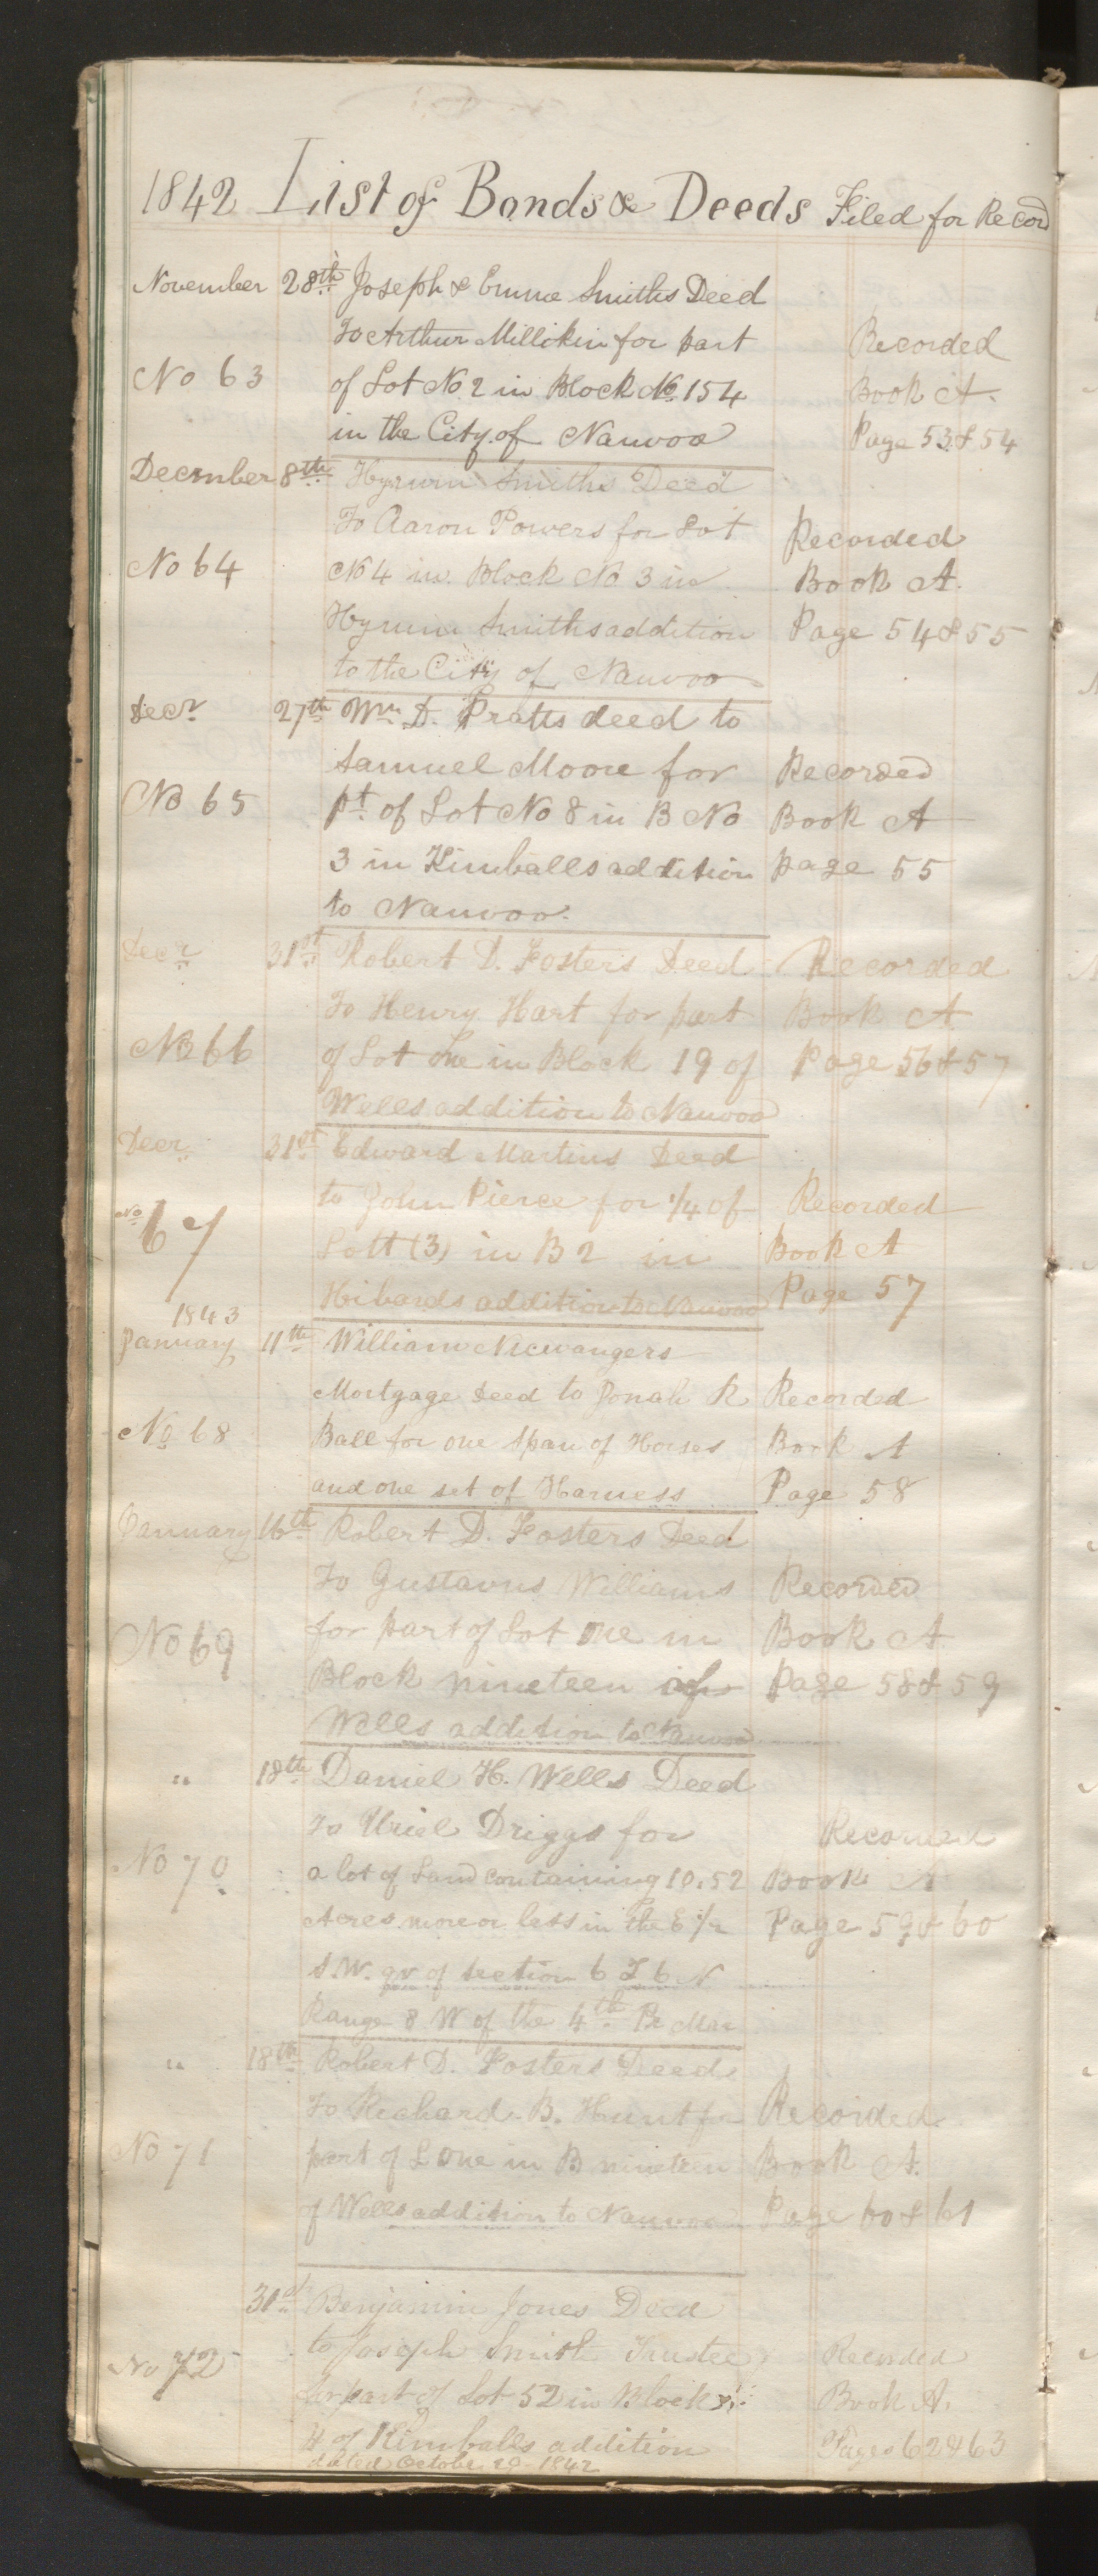 1842 List of Bonds & Deeds Filed for Record
November 28th Joseph & Emma Smiths Deed
To Arthur Millikin for part Recorded
No 63 of Lot No 2 in Block No. 154 Book A.
in the City of Nauvoo Page 53 & 54
December 8th Hyrum Smiths Deed
To Aaron Powers for Lot Recorded
No 64 No 4 in Block No 3 in Book A.
Hyrum Smiths addition Page 54 & 55
to the City of Nauvoo
Decr 27th Wm D. Pratts deed to
Samuel Moore for Recorded
No 65 pt of Lot No 8 in B No Book A
3 in Kimballs addition page 55
to Nauvoo.
Decr 31st Robert D. Fosters Deed Recorded
To Henry Hart for part Book A
No 66 of Lot One in Block 19 of Page 56 & 57
Wells addition to Nauvoo
Decr 31st Edward Martins Deed
to John Pierce for 1/4 of Recorded
No 67 Lott (3) in B 2 in Book A
Hibards addition to Nauvoo Page 57
1843
January 11th William
Mortgage Deed to Jonah R Recorded
No 68 Ball for one span of Horses Book A
and one set of Harness Page 58
January 16th Robert D. Fosters Deed
To Gustavus Williams Recorded
No 69 for part of Lot One in Book A
Block nineteen of Page 58 & 59
Wells addition to Nauvoo
" 18th Daniel H. Wells Deed
To Uriel Driggs for Recorded
No 70 a lot of Land containing 10.52 Book A
Acres more or less in the E 1/2 Page 59 & 60
S.W. qr of section 6 T 6 N
Range 8 W of the 4th Pr Mer
" 18th Robert D. Fosters Deed
To Richard B. Hunt for Recorded
No 71 part of L One in B nineteen Book A.
of Wells addition to Nauvoo Page 60 & 61
31st Benjamin Jones Deed
to Joseph Smith Trustee Recorded
No 72 for part of Lot 52 in Block Book A.
4 of Kimballs addition Pages 62 & 63
dated October 29 1842